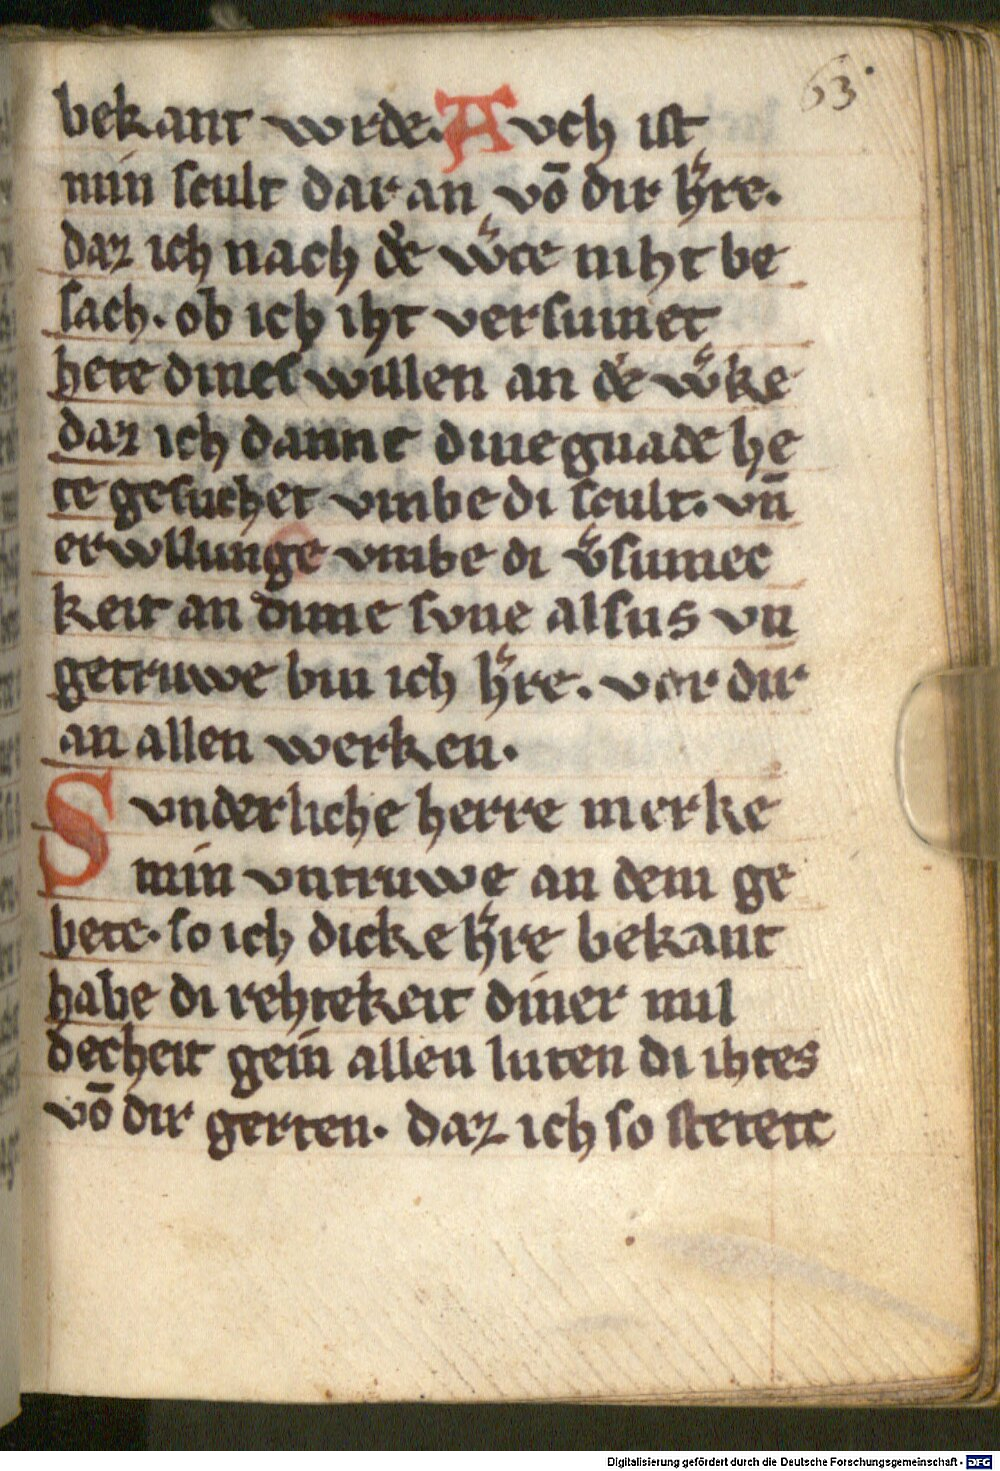 63.
bekant wrde. Avch ist
min scult dar an vō dir h̉re.
daz ich nach d̉e w̉ce niht be
sach. ob ich iht versumet
hete dines willen an d̉e w̉ke
daz ich danne dine gnade he
te gesuchet vmbe di scult. vn̄
erwllunge vmbe di v̉sumec
keit an dime svne alsus vn
getruwe bin ich h̉re. vor dir
an allen werken.
Svnderliche herre merke
min vntruwe an dem ge
bete. so ich dicke h̉re bekant
habe di rehtekeit diner mil
decheit gein allen luten di ihtes
vō dir gerten. daz ich so stetett
Digitalisierung gefördert durch die Deutsche Forschungsgemeinschaft - DFG